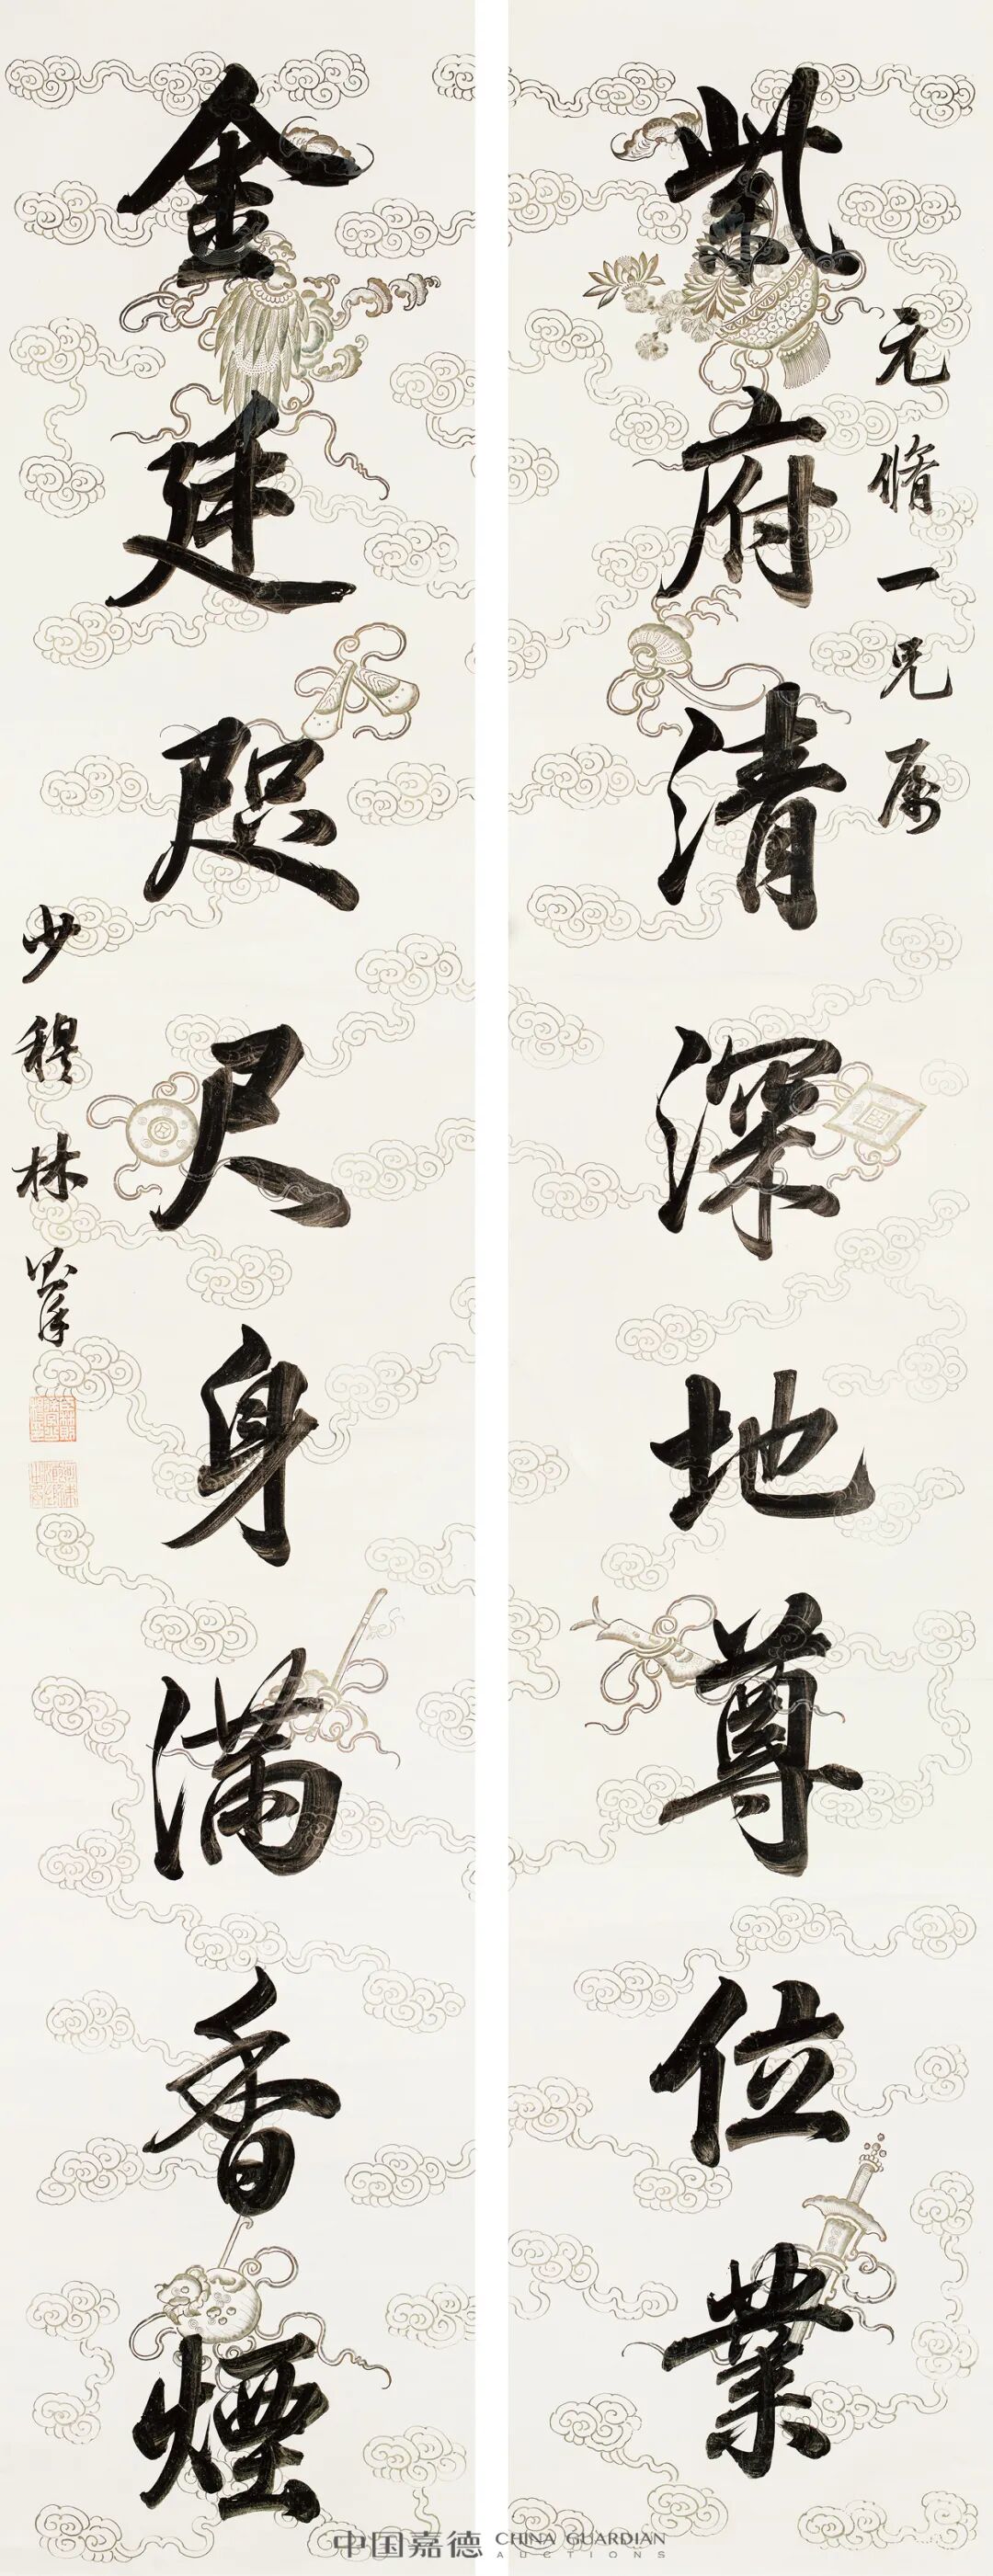 元脩一兄属
紫府清深地尊位業
金廷咫尺身滿香煙
少穆林則徐
中国嘉德 CHINA GUARDIAN
AUCTIONS